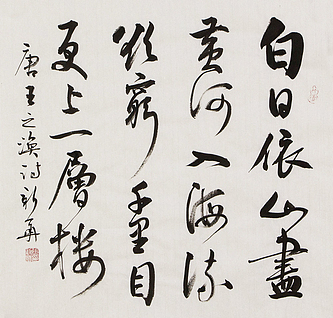 白日依山盡
黄河入海流
欲窮千里目
更上一層樓
唐王之渙詩新苒